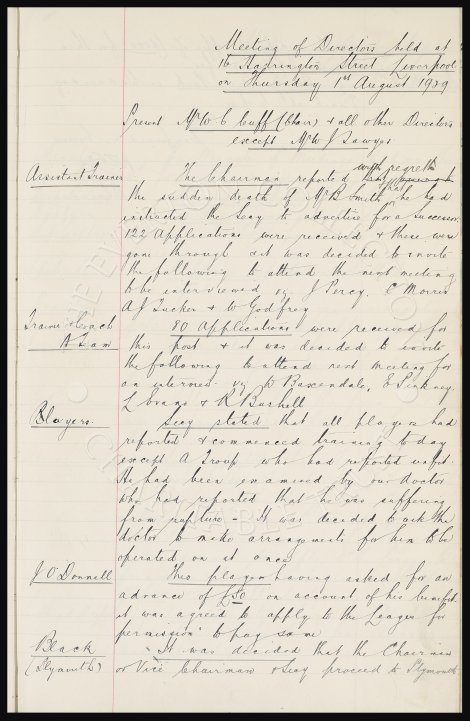 Meeting of Directors held at
16 Hackrington Street Liverpool
on Thursday 1st August 1929
Present Mr W C Cuff (Chair) & all other Directors
except Mr W J Sawyer
Assistant Trainer
The Chairman reported with regret
that
the sudden death of Mr B Smith he had
instructed the Secy to advertise for a successor.
122 Applications were received & these were
gone through & it was decided to invite
the following to attend the next meeting
to be interviewed viz J Percy, C Morris
A J Tucker & W Godfrey
Trainer Coach
A Team
80 Applications were received for
this post & it was decided to invite
the following to attend next meeting for
an interview. viz Baxendale, Pinkney
L Evans & R Burkell
Players.
Secy stated that all players had
reported & commenced training to day
except A Troup who had reported unfit.
He had been examined by our doctor
who had reported that he was suffering
from rupture - It was decided to ask the
doctor to make arrangements for him to be
operated on at once
J O'Donnell
This player having asked for an
advance of £50 on account of his benefit
it was agreed to apply to the League for
permission to pay same
Black
(Plymouth)
It was decided that the Chairman
or Vice Chairman & Secy proceed to Plymouth